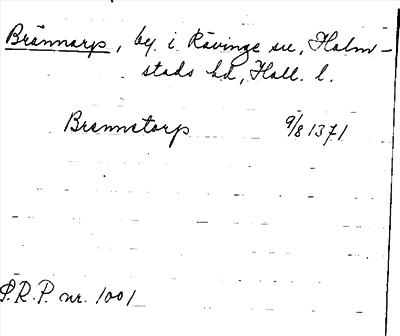 Brännarp, by i Kävinge sn, Halm-
stads hd, Hall. l.
Brennetorp 9/8 1371
S.R.P. nr. 1001